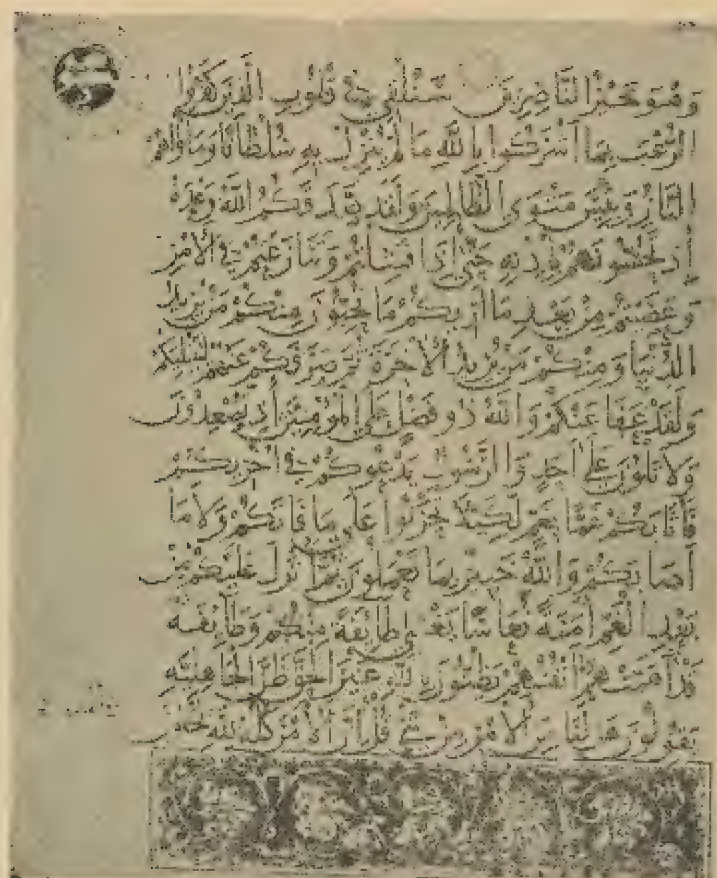 وَهُوَ خَيْرُ النَّاصِرِينَ سَنُلْقِي فِي قُلُوبِ الَّذِينَ كَفَرُوا
الرُّعْبَ بِمَا أَشْرَكُوا بِاللَّهِ مَا لَمْ يُنَزِّلْ بِهِ سُلْطَانًا وَمَأْوَاهُمُ
النَّارُ وَبِئْسَ مَثْوَى الظَّالِمِينَ وَلَقَدْ صَدَقَكُمُ اللَّهُ وَعْدَهُ
إِذْ تَحُسُّونَهُمْ بِإِذْنِهِ حَتَّى إِذَا فَشِلْتُمْ وَتَنَازَعْتُمْ فِي الْأَمْرِ
وَعَصَيْتُمْ مِنْ بَعْدِ مَا أَرَيكُمْ مَا تُحِبُّونَ مِنْكُمْ مَنْ يُرِيدُ
الدُّنْيَا وَمِنْكُمْ مَنْ يُرِيدُ الْآخِرَةَ ثُمَّ صَرَفَكُمْ عَنْهُمْ لِيَبْتَلِيَكُمْ
وَلَقَدْ عَفَا عَنْكُمْ وَاللَّهُ ذُو فَضْلٍ عَلَى الْمُؤْمِنِينَ إِذْ تُصْعِدُونَ
وَلَا تَلْوُونَ عَلَى أَحَدٍ وَالرَّسُولُ يَدْعُوكُمْ فِي أُخْرَيكُمْ
فَأَثَابَكُمْ غَمًّا بِغَمٍّ لِكَيْلَا تَحْزَنُوا عَلَى مَا فَاتَكُمْ وَلَا مَا
أَصَابَكُمْ وَاللَّهُ خَبِيرٌ بِمَا تَعْمَلُونَ ثُمَّ أَنْزَلَ عَلَيْكُمْ مِنْ
بَعْدِ الْغَمِّ أَمَنَةً نُعَاسًا يَغْشَى طَائِفَةً مِنْكُمْ وَطَائِفَةٌ
قَدْ أَهَمَّتْهُمْ أَنْفُسُهُمْ يَظُنُّونَ بِاللَّهِ غَيْرَ الْحَقِّ ظَنَّ الْجَاهِلِيَّةِ
يَقُولُونَ هَلْ لَنَا مِنَ الْأَمْرِ مِنْ شَيْءٍ قُلْ إِنَّ الْأَمْرَ كُلَّهُ لِلَّهِ يُخْفُونَ